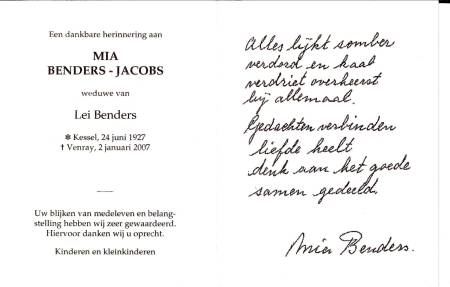 Een dankbare herinnering aan
MIA
BENDERS - JACOBS
weduwe van
Lei Benders
✻ Kessel, 24 juni 1927
† Venray, 2 januari 2007
Uw blijken van medeleven en belang-
stelling hebben wij zeer gewaardeerd.
Hiervoor danken wij u oprecht.
Kinderen en kleinkinderen
Alles lijkt somber
verdord en kaal
verdriet overheerst
bij allemaal.
Gedachten verbinden
liefde heelt
denk aan het goede
samen gedeeld.
Mia Benders.